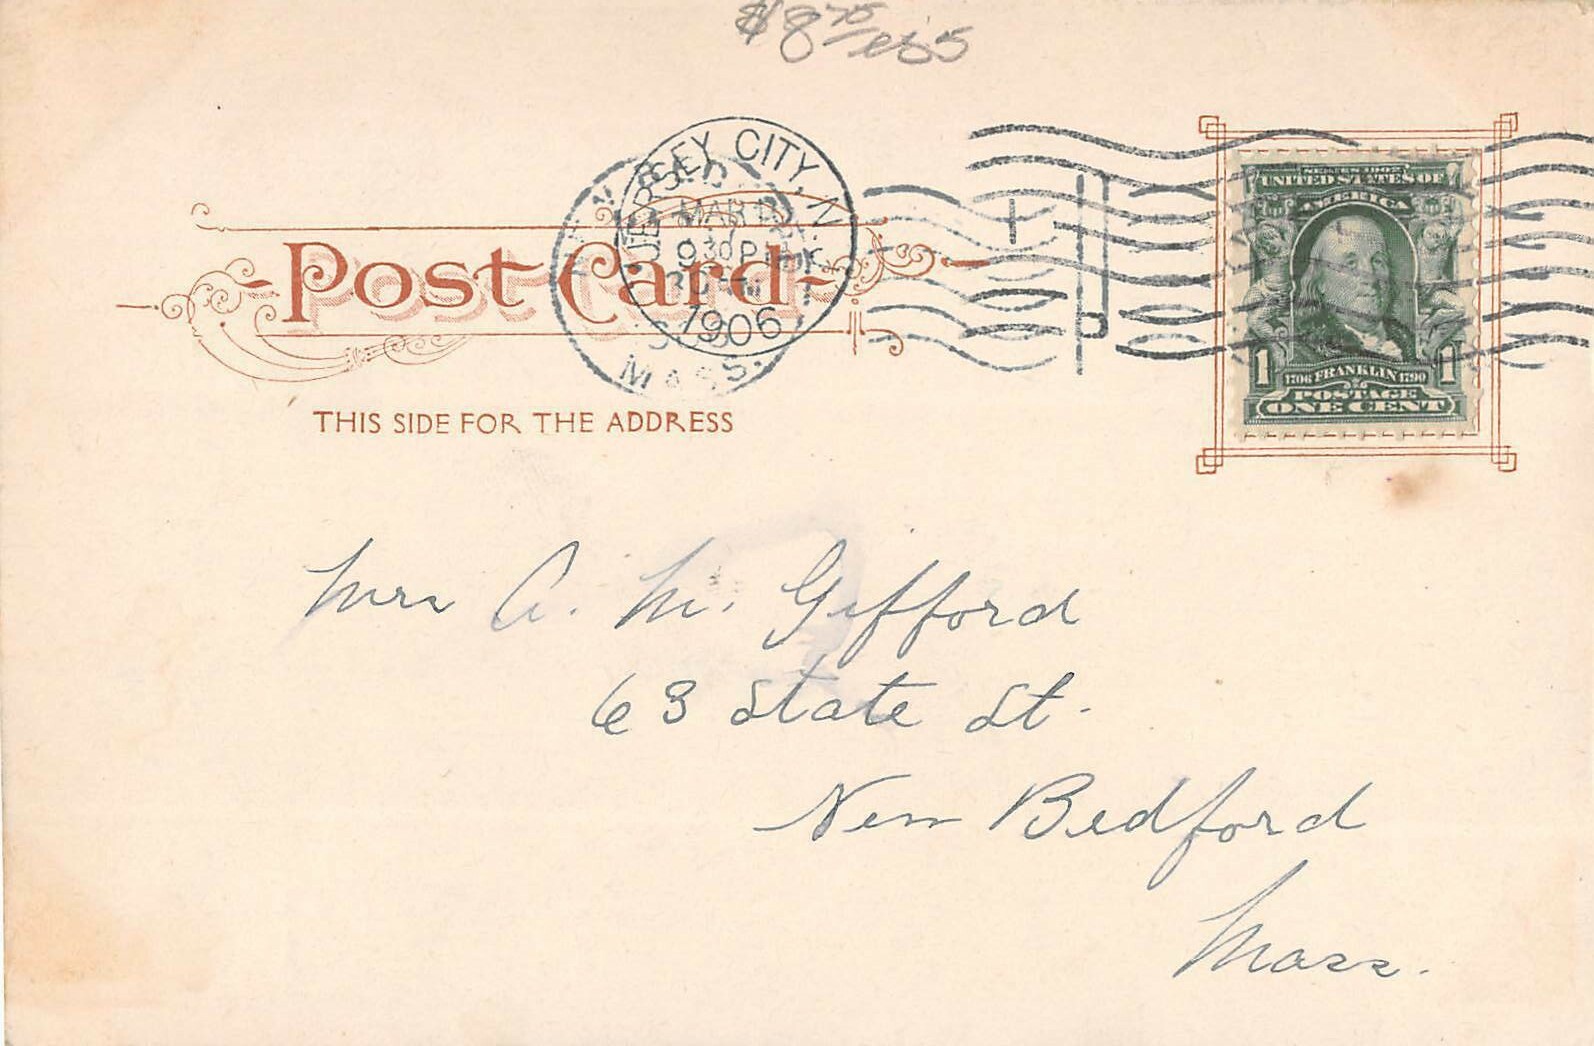 $8 75
JERSEY CITY, N.
MAR
7
9 30 P
1906
MASS.
SERIES 1902
UNITED STATES OF
AMERICA
1 1706 FRANKLIN 1790 1
POSTAGE
ONE CENT
Post Card
THIS SIDE FOR THE ADDRESS
Mrs A. M. Gifford
63 State St.
New Bedford
Mass.